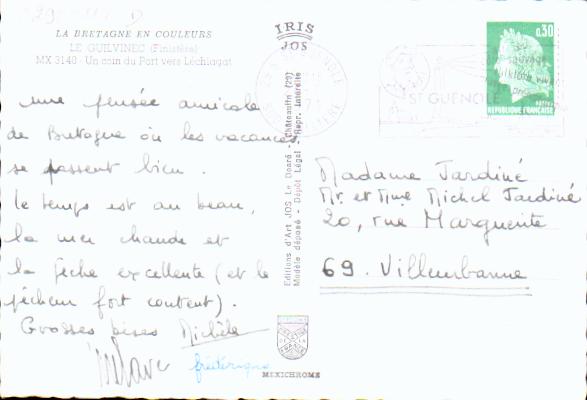 LA BRETAGNE EN COULEURS
LE GUILVINEC (Finistère)
MX 3140 - Un coin du Port vers Léchiagat
une pensée amicale
de Bretagne où les vacances
se passent bien.
le temps est au beau,
la mer chaude et
la pêche excellente (et le
pêcheur fort content).
Grosses bises Michèle
frédérique
IRIS
JOS
Editions d'Art JOS Le Doaré - Châteaulin (29)
Modèle déposé - Dépôt Légal - Repr. Interdite
MEXICHROME
0,30
POSTES
REPUBLIQUE FRANÇAISE
ST GUENOLÉ
Madame Jardiné
Mr. et Mme Michel Jardiné
20, rue Marguerite
69. Villeurbanne